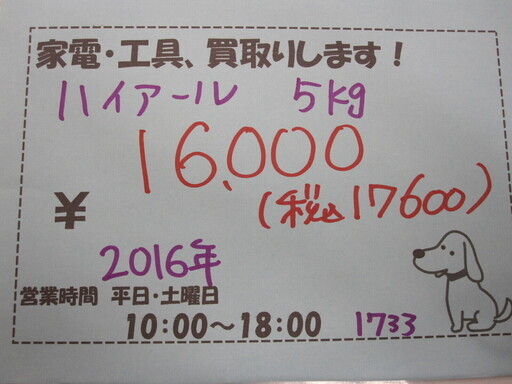 家電・工具、買取りします！
ハイアール 5kg
16,000
¥
(税込17600)
2016年
営業時間 平日・土曜日
10:00～18:00 1733